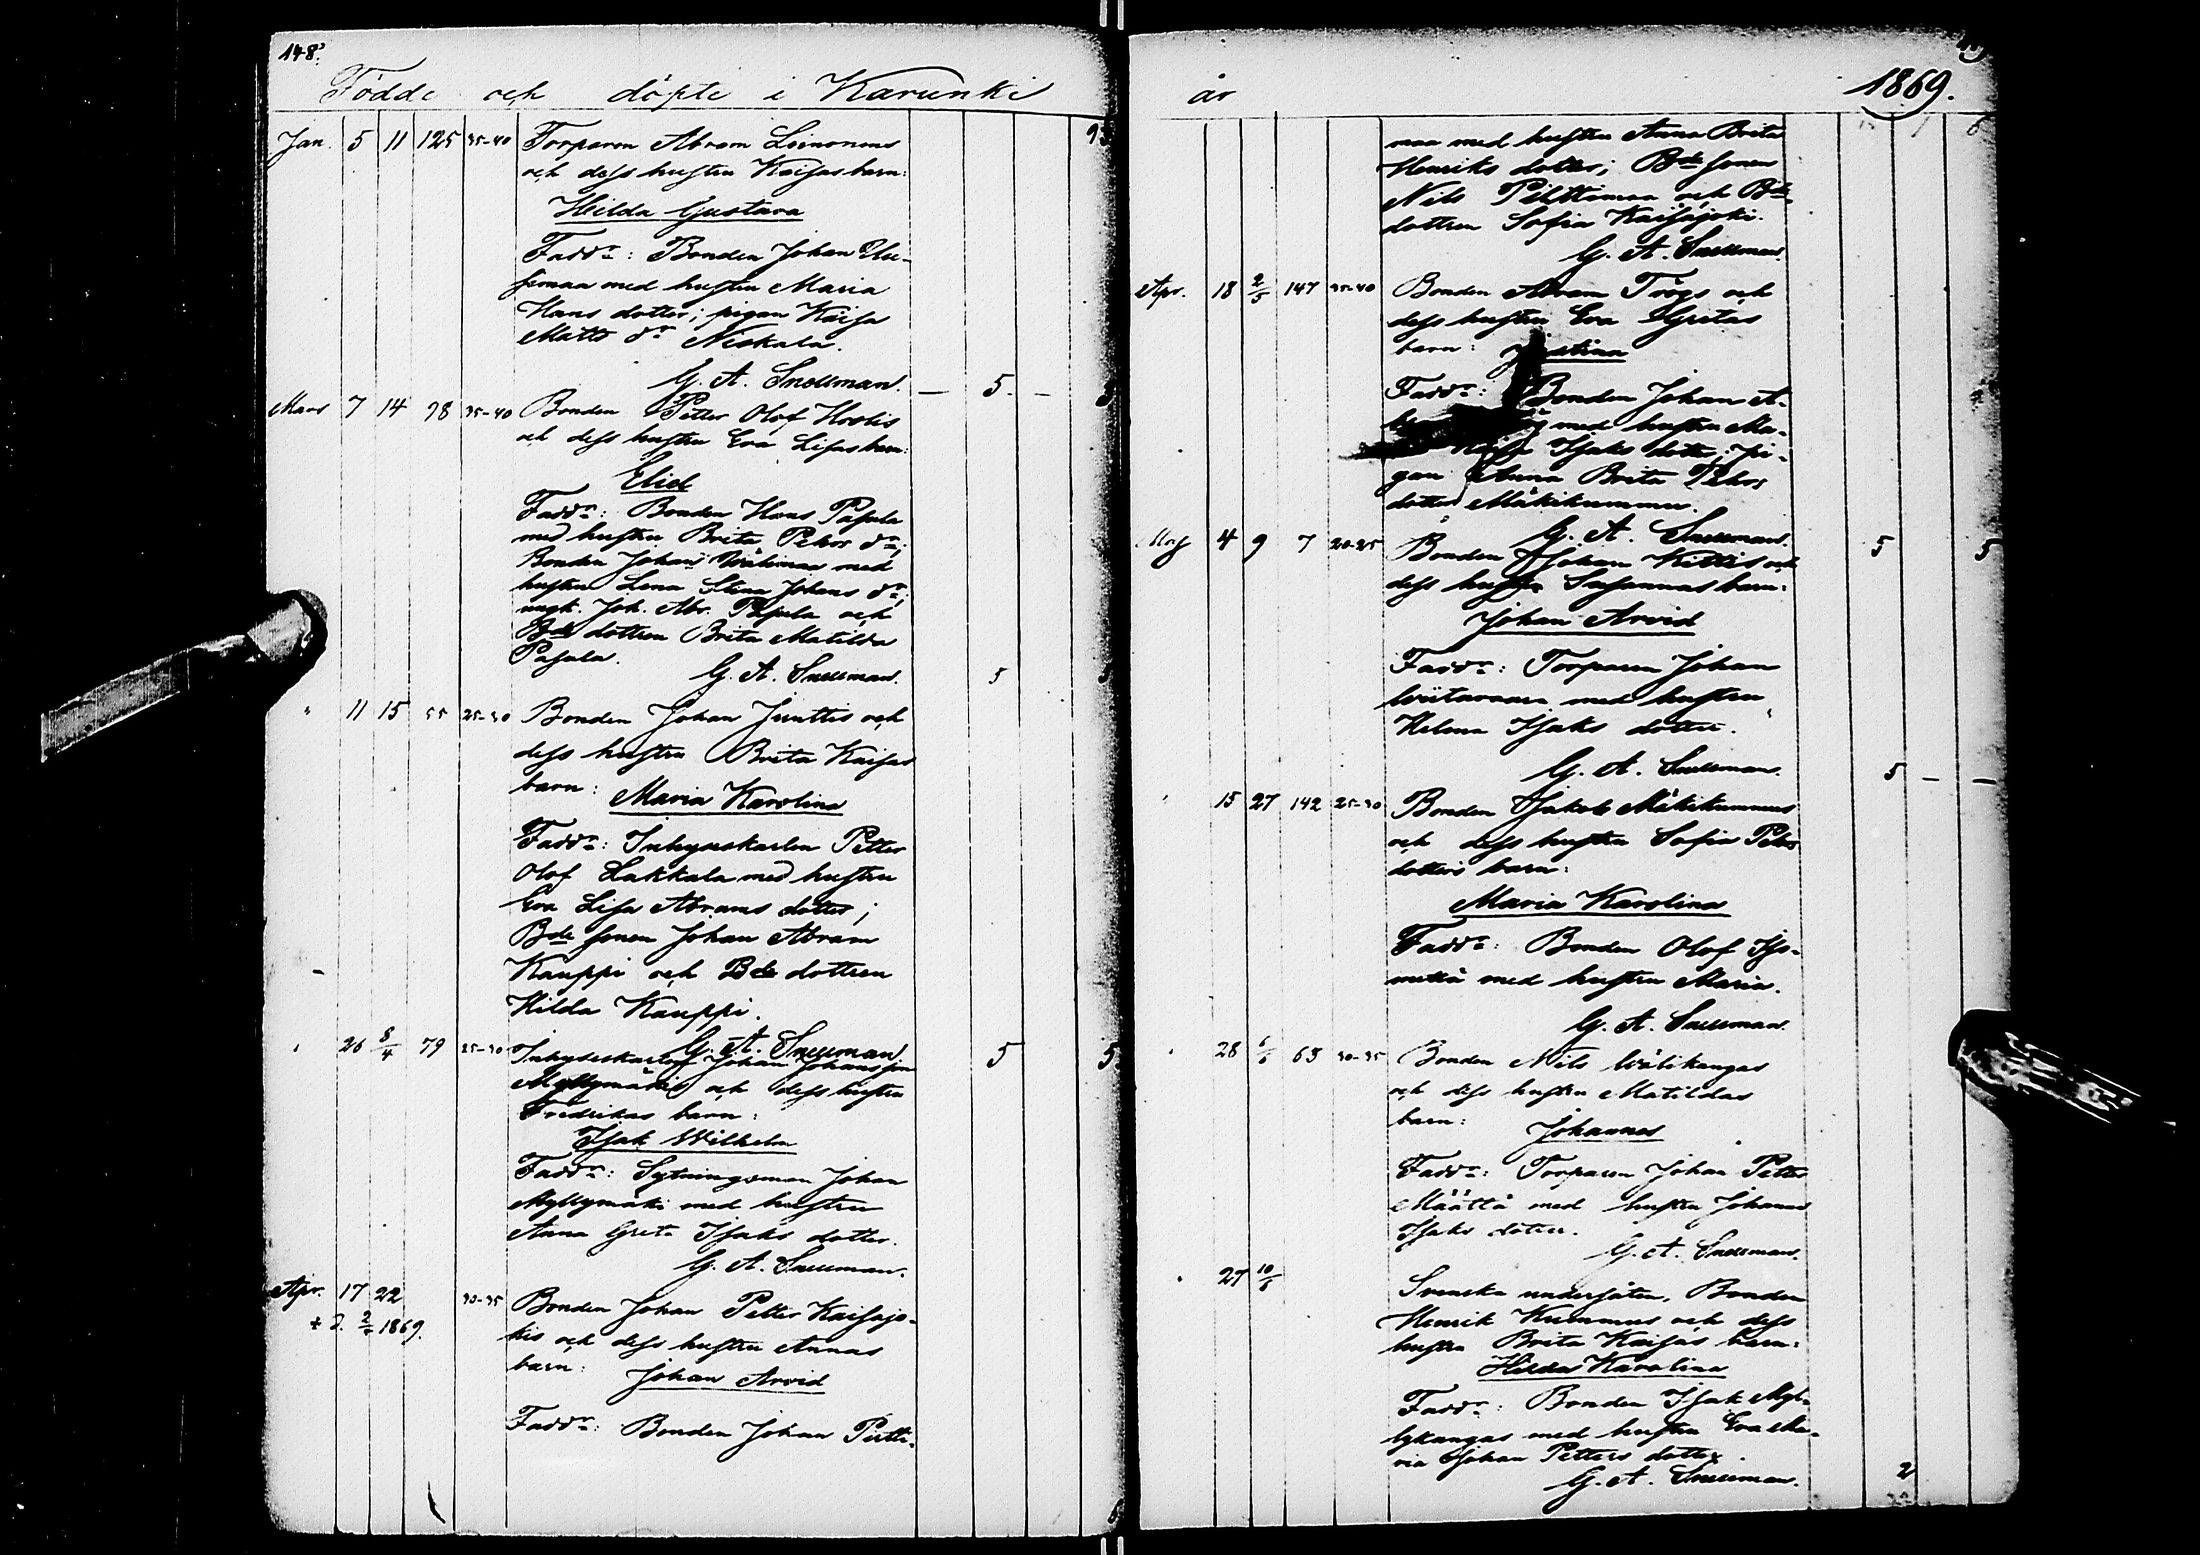 148.
Födde och döpte i Karunki
Jan. 5 11 125 35-40 Torparen Abram Leinonens
och dess hustru Kaisas barn:
Hilda Gustava
Fadd:r: Bonden Johan
med hustru Maria
Hans dotter; pigan Kaisa
Matts d:r Niskala.
G. A. Snellman. — 5. —
Mars 7 14 78 35-40 Bonden Petter Olof Hoolis
och dess hustru Eva Lisas barn:
Eliel
Fadd:r: Bonden Hans Pasula
med hustru Brita Pehrs d:r;
Bonden Johan Välimaa med
hustru Lena Stina Johans d:r;
ungk. Joh. Abr. Pasula och
Bde dottren Brita Matilda
Pasula.
G. A. Snellman. 5
" 11 15 55 25-30 Bonden Johan Junttis och
dess hustru Brita Kaisas
barn: Maria Karolina
Fadd:r: Inhyseskarlen Petter
Olof Lakkala med hustru
Eva Lisa Abrams dotter;
Bde sonen Johan Abram
Kauppi och Bde dottren
Hilda Kauppi.
G. A. Snellman 5 5
" 26 8/4 79 25-30 Inhyseskarlen Johan Johansson
Myllymäkis och dess hustru
Fredrikas barn:
Isak Wilhelm
Fadd:r: Sytningsman Johan
Myllymäki med hustru
Anna Greta Isaks dotter.
G. A. Snellman.
Apr. 17 22 30-35 Bonden Johan Petter Kaisajo-
+ d. 1869. kis och dess hustru Annas
barn: Johan Arvid
Fadd:r: Bonden Johan Pirtti-
år 1869.
maa med hustru Anna Brita
Henriks dotter; Bde sonen
Nils Pirttimaa och Bde
dottren Sofia Kaisajoki.
G. A. Snellman.
Apr. 18 2/5 147 35-40 Bonden Abram Törgs och
dess hustru Eva Gretas
barn:
Fadd:r: Bonden Johan A-
med hustru Ma-
Isaks dotter, pi-
gan Anna Brita Pehrs
dotter Mäkikummu.
G. A. Snellman.
Maj 4 9 7 20-25 Bonden Johan Kittis och 5 5
dess hustru Susannas barn:
Johan Arvid
Fadd:r: Torparen Johan
Wiitavaara med hustru
Helena Isaks dotter.
G. A. Snellman. 5 — —
" 15 27 142 25-30 Bonden Isak Mäkikummus
och dess hustru Sofia Pehrs
dotters barn:
Maria Karolina
Fadd:r: Bonden Olof Iso-
mettä med hustru Maria.
G. A. Snellman.
" 28 6/6 63 30-35 Bonden Nils Wälikangas
och dess hustru Matildas
barn: Johannes
Fadd:r: Torparen Johan Petter
Määttä med hustru Johanna
Isaks dotter.
G. A. Snellman.
" 27 10/6 Svenska undersåten, Bonden
Henrik Kummus och dess
hustru Brita Kaisas barn:
Hilda Karolina
Fadd:r: Bonden Isak Myl-
lykangas med hustru Eva Ma-
ria Johan Petters dotter.
G. A. Snellman. 2